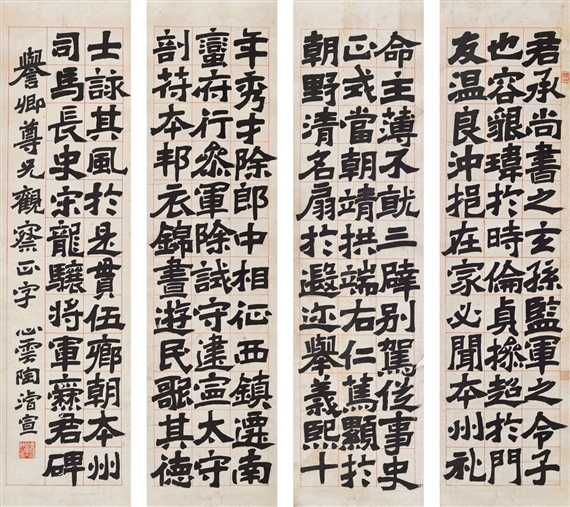 君承尚書之玄孫監軍之令子
也容貌瑋於時倫貞操超於門
友温良沖挹在家必聞本州礼
命主薄不就三辟別駕從事史
正式當朝靖拱端右仁篤顯於
朝野清名扇於遐迩舉義熙十
年秀才除郎中相征西鎮遷南
蠻府行參軍除試守建寧太守
剖符本邦衣錦晝遊民歌其德
士詠其風於是貫伍鄉朝本州
司馬長史宋龍驤將軍爨君碑
譽卿尊兄觀察正字 心雲陶濬宣